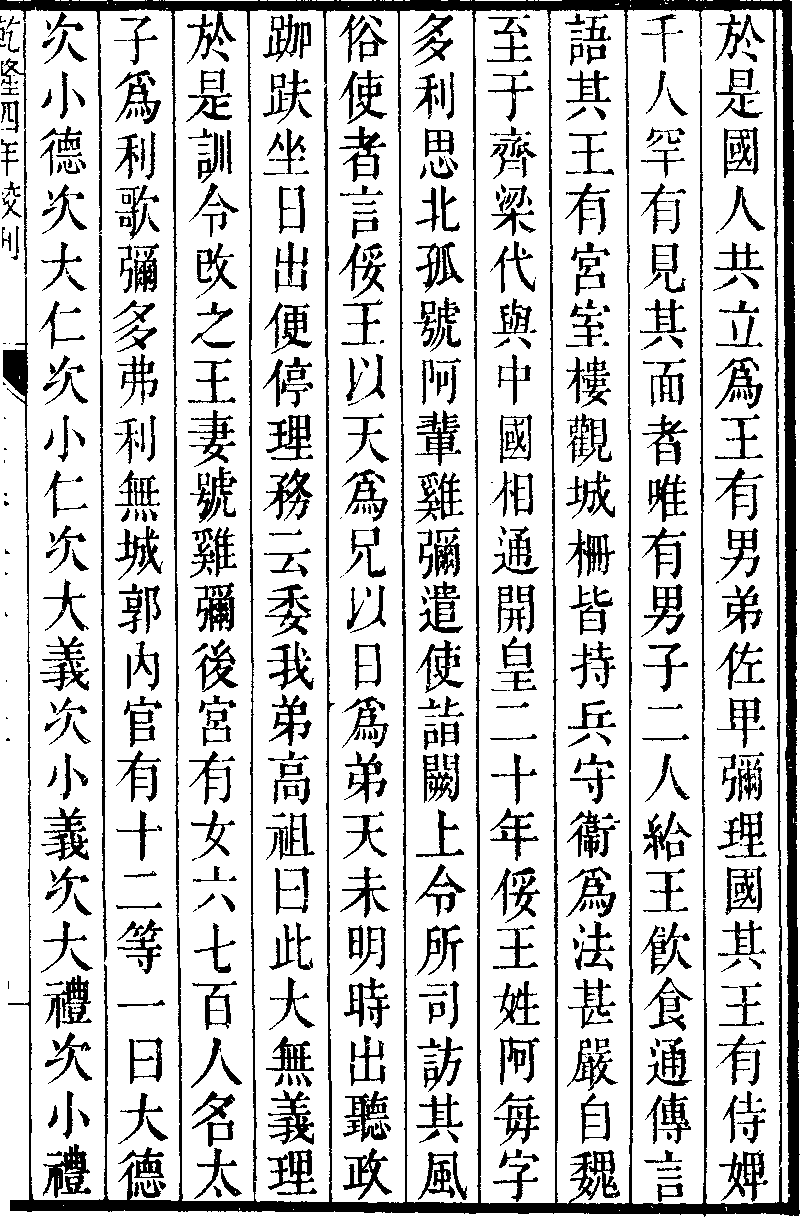 於是國人共立爲王有男弟佐甲彌理國其王有侍婢
千人罕有見其面者唯有男子二人給王飮食通傳言
語其王有宮室樓觀城柵皆持兵守衞爲法甚嚴自魏
至于齊梁代與中國相通開皇二十年俀王姓阿每字
多利思北孤號阿輩雞彌遣使詣闕上令所司訪其風
俗使者言俀王以天爲兄以日爲弟天未明時出聽政
跏趺坐日出便停理務云委我弟高祖曰此大無義理
於是訓令改之王妻號雞彌後宮有女六七百人名太
子爲利歌彌多弗利無城郭內官有十二等一曰大德
次小德次大仁次小仁次大義次小義次大禮次小禮
乾隆四年校刊